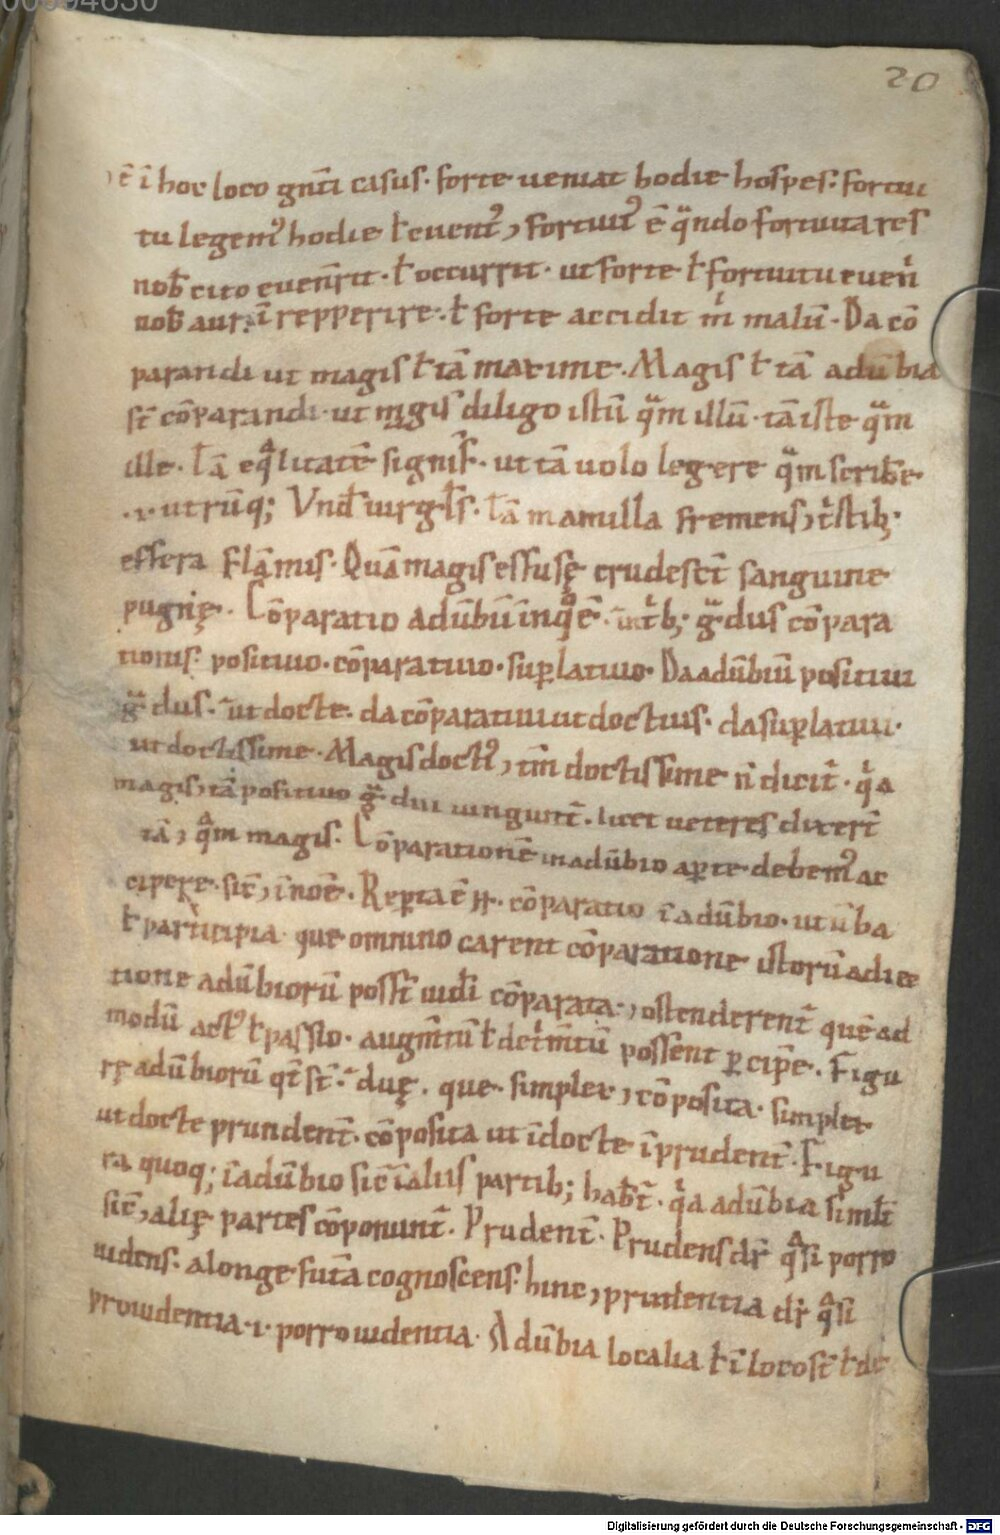 00094630
20
ē ī hoc loco gn̄ti casus· forte ueniat hodie hospes· fortui
tu legem᾽ hodie ł euent᾽, fortuit᾽ ē qͣndo fortuita res
nob̄ cito euen̄rit· ł occurrit· ut forte ł fortuitu euen̄
nob̄ repperire· ł forte accidit m̍ malū· Da cō
parandi ut magis ł tā maxime· Magis ł tā adūbia
st̄ cōparandi· ut magis diligo istū qͣm illū· tā iste qͣm
ille· Tā eqͣlitatē signif̄· ut tā uolo legere qͣm scrib̄e
·i· utrūq; Vnd̄ uirgł̄s· Tā mamilla fremens, t̍stib;
effera flāmis· Quā magis effusę crudesct̄ sanguine
pugnę· Cōparatio adūbiū īnqͦ ē· t̍b; gͣdus cōpara
tionis· positiuo· cōparatiuo· suꝑlatiuo· Da adūbiū positiui
gͣdus· ut docte· da cōparatiui ut doctius· da suꝑlatiui·
ut doctissime· Magis doct᾽, tm̄ doctissime n̄ dicit̄· qͥa
magis, tā positiuo gͣdui iungunt̄· licet ueteres dicert̄
tā, qͣm magis· Cōparationē in adūbio aꝑte debem᾽ ac
cipere· sic̄, ī noīe· Reꝑta ē· cōparatio ī adūbio· ut ūba
ł participia que omnino carent cōparatione istorū adiec
tione adūbiorū posst̄ uidi cōparata·, ostenderent̄ quē ad
modū act᾽ ł passio· augm̄tū ł det̍m̄tū possent ꝑciꝑe· Figu
rę adūbiorū qt̄ st̄· duę· que· simplex, cōposita· simplex
ut docte prundent̄· cōposita ut īdocte īprudent̄· Figu
ra quoq; ī adūbio sic̄ ī aliis partib; hab̄t̄· qͥa adūbia sīmlt̄
sic̄, alię partes cōponunt̄· Prudent̄· Prudens dr̄ qͣsi porro
uidens· a longe fut̄a cognoscens· hinc, prudentia dr̄ qͣsi
prouidentia·i· porro uidentia· Adūbia localia ł ī loco st̄ ł de
Digitalisierung gefördert durch die Deutsche Forschungsgemeinschaft - DFG